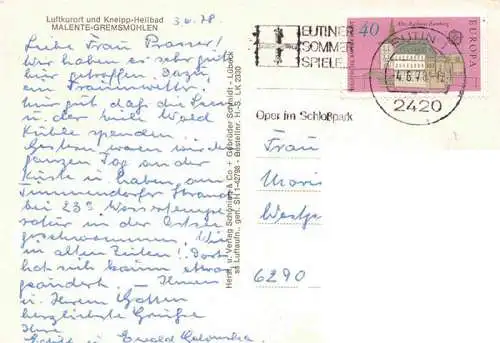 Luftkurort und Kneipp-Heilbad
MALENTE-GREMSMÜHLEN
3.6.78.
Liebe Frau Prasser!
Wir haben es sehr gut
hier getroffen. Dazu
ein Traumwetter,
nur gut daß die Seen
u. der viele Wald
Kühle spenden.
Gestern waren wir den
ganzen Tag an der
Küste u. haben am
Timmendorfer Strand
bei 23° Wassertempe-
ratur in der Ostsee
geschwommen. Wie
in alten Zeiten! Dort
hat sich kaum etwas
geändert. — Ihnen
u. Ihrem Gatten
herzlichste Grüße
Ihre
u. Ewald
Herst. u. Verlag Schöning & Co + Gebrüder Schmidt - Lübeck
Bestellnr. H.-S. LK 2330
EUTINER
SOMMER
SPIELE
Oper im Schloßpark
40
EUROPA
EUTIN 1
4.6.78.-12
2420
Frau
Westp
6290